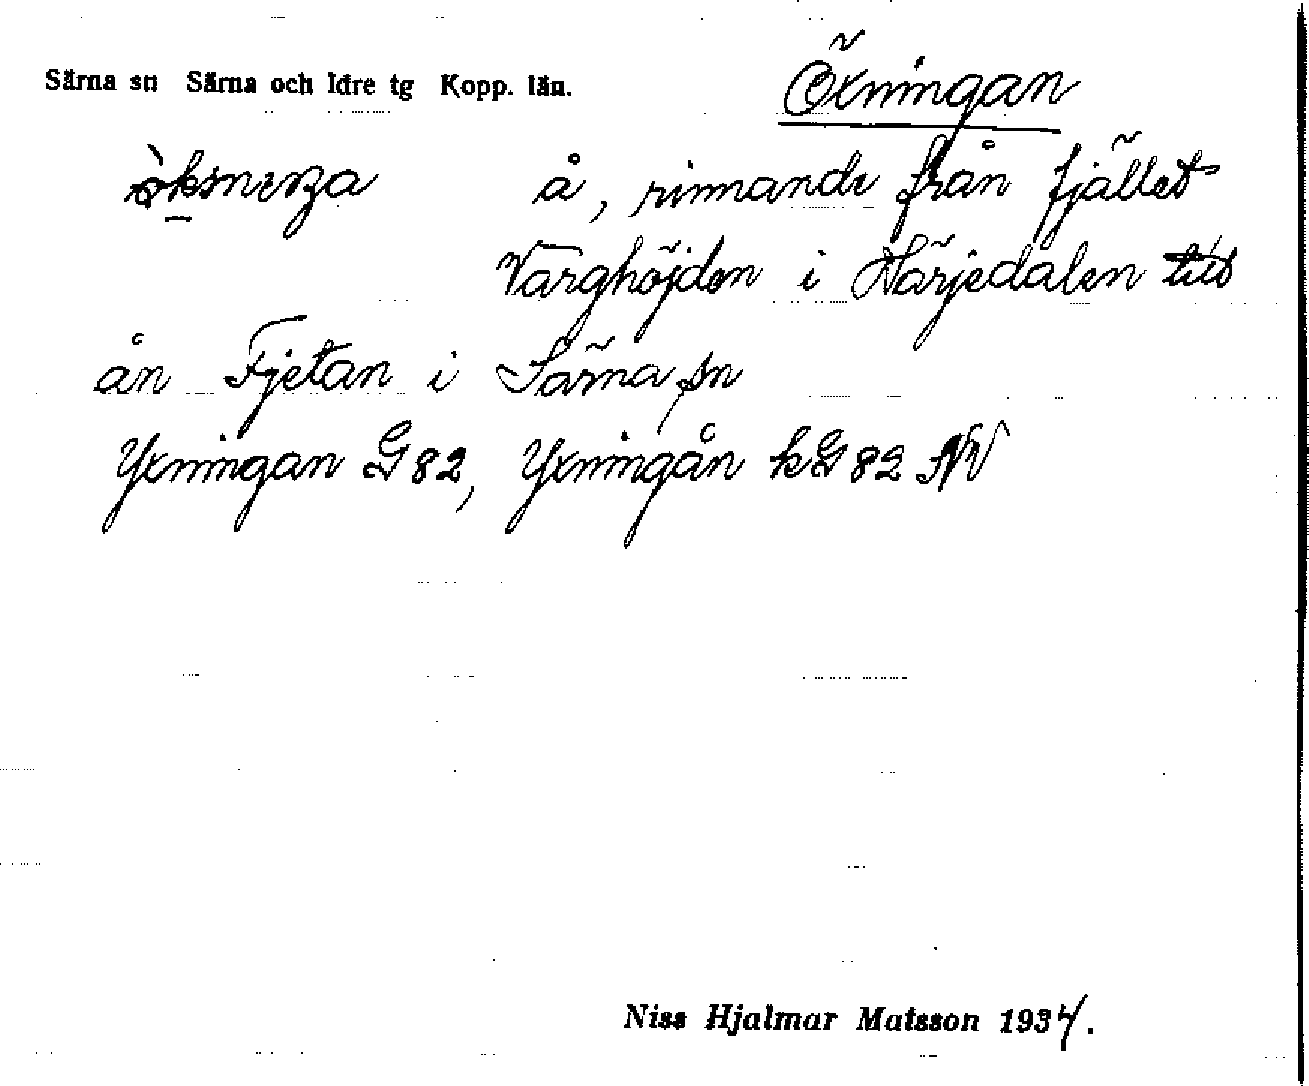 Särna sn Särna och Idre tg Kopp. län.
Öxningan
å, rinnande från fjället
Varghöjden i Härjedalen till
ån Fjetan i Särna sn
Yxningan G 82, Yxningån kG 82 NV
Niss Hjalmar Matsson 1934.